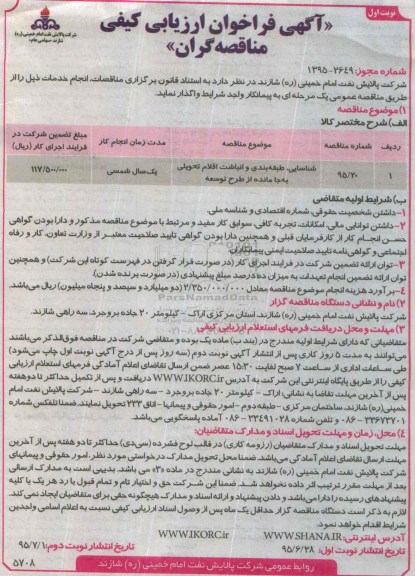 نوبت اول
«آگهی فراخوان ارزیابی کیفی
مناقصه‌گران»
شرکت پالایش نفت امام خمینی (ره)
شازند
شماره مجوز: ۱۳۹۵-۲۶۴۹
شرکت پالایش نفت امام خمینی (ره) شازند در نظر دارد به استناد قانون برگزاری مناقصات، انجام خدمات ذیل را از
طریق مناقصه عمومی یک مرحله‌ای به پیمانکار واجد شرایط واگذار نماید.
۱) موضوع مناقصه
الف) شرح مختصر کالا
ردیف شماره مناقصه موضوع مناقصه مدت زمان انجام کار مبلغ تضمین شرکت در
فرایند اجرای کار (ریال)
۱ ۹۵/۲۰ شناسایی، طبقه‌بندی و انباشت اقلام تحویلی
به‌جا مانده از طرح توسعه یک‌سال شمسی ۱۱۷/۵۰۰/۰۰۰
ب) شرایط اولیه متقاضی
۱- داشتن شخصیت حقوقی، شماره اقتصادی و شناسه ملی.
۲- داشتن توانایی مالی، امکانات، تجربه کافی، سوابق کار مفید و مرتبط با موضوع مناقصه مذکور و دارا بودن گواهی
حسن انجام کار از کارفرمایان قبلی و همچنین دارا بودن گواهی تایید صلاحیت معتبر از وزارت تعاون، کار و رفاه
اجتماعی و گواهی‌نامه تایید صلاحیت ایمنی پیمانکاران.
۳- توان ارائه تضمین شرکت در فرایند اجراق کار (در صورت قرار گرفتن در فهرست کوتاه این شرکت) و همچنین
توان ارائه تضمین انجام تعهدات به میزان ده درصد مبلغ پیشنهادی (در صورت برنده شدن).
۴- برآورد هزینه انجام موضوع مناقصه معادل ۲/۳۵۰/۰۰۰/۰۰۰ (دو میلیارد و سیصد و پنجاه میلیون) ریال می‌باشد.
۲) نام و نشانی دستگاه مناقصه گزار
شرکت پالایش نفت امام خمینی (ره) شازند، استان مرکزی اراک - کیلومتر ۲۰ جاده بروجرد، سه راهی شازند.
۳) مهلت و محل دریافت فرمهای استعلام ارزیابی کیفی
متقاضیانی که دارای شرایط اولیه مندرج در (بند ب) ماده یک بوده و متقاضی شرکت در مناقصه فوق‌الذکر می‌باشند
می‌توانند به مدت ۵ روز کاری پس از انتشار آگهی نوبت دوم (سه روز پس از درج آگهی نوبت اول چاپ می‌شود)
طی ساعات اداری از ساعت ۷ صبح لغایت ۱۵:۳۰ عصر ضمن ارسال تقاضای اعلام آمادگی فرمهای استعلام ارزیابی
کیفی را از طریق پایگاه اینترنتی این شرکت به آدرس WWW.IKORC.ir دریافت و پس از تکمیل حداکثر تا دو هفته
پس از آخرین مهلت تقاضا به نشانی: اراک - کیلومتر ۲۰ جاده بروجرد - سه راهی شازند - شرکت پالایش نفت امام
خمینی (ره) شازند، ساختمان مرکزی - طبقه دوم - امور حقوقی و پیمانها - اتاق ۲۳۳ تحویل نمایند. ضمنا تلفکس شماره
۳۳۶۷۳۷۰۱ - ۰۸۶ و تلفن ۳۳۴۹۱۰۲۸ - ۰۸۶ آماده پاسخگویی می‌باشد.
۴) محل، زمان و مهلت تحویل اسناد و مدارک متقاضیان:
مهلت تحویل اسناد و مدارک متقاضیان (رزومه کاری) در قالب لوح فشرده (سی‌دی) حداکثر تا دو هفته پس از آخرین
مهلت ارسال تقاضای اعلام آمادگی می‌باشد. ضمنا محل تحویل مدارک درخواستی مورد نظر، امور حقوقی و پیمانهای
شرکت پالایش نفت امام خمینی (ره) شازند به نشانی مندرج در ماده «۳» می باشد. بدیهی است به مدارک ارسالی
بعد از مهلت مقرر ترتیب اثر داده نخواهد شد. ضمنا این شرکت حق و اختیار تام و تمام قبول یا رد هر یک یا کلیه
پیشنهادهای رسیده را دارا می‌باشد و دادن پیشنهاد و ارائه اسناد و مدارک هیچگونه حقی برای متقاضیان ایجاد نمی کند.
لازم به ذکر است دستگاه مناقصه گزار حداقل یک ماه پس از وصول اسناد ارزیابی کیفی نسبت به اعلام اسامی واجدین
شرایط اقدام خواهد نمود.
آدرس اینترنتی: WWW.SHANA.IR WWW.IKORC.ir
تاریخ انتشار نوبت اول: ۹۵/۶/۲۸ تاریخ انتشار نوبت دوم: ۹۵/۷/۱
روابط عمومی شرکت پالایش نفت امام خمینی (ره) شازند
۵۷۰۸
ParsNamadData